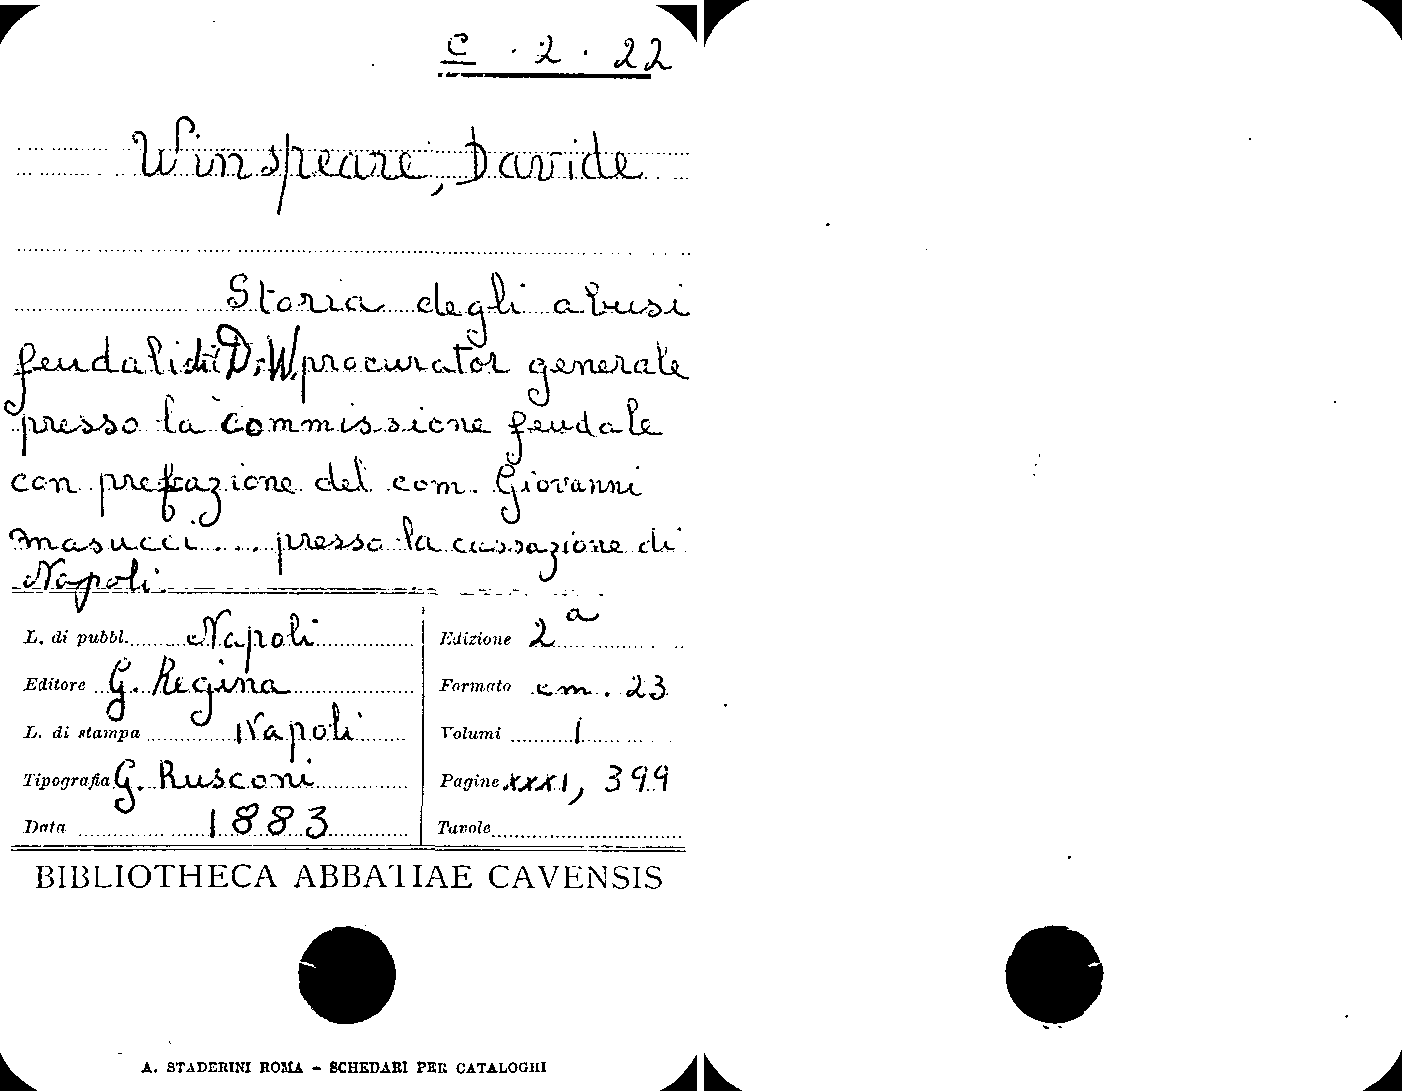 C . 2 . 22
Winspeare, Davide
Storia degli abusi
feudali di D. W. procurator generale
presso la commissione feudale
con prefazione del com. Giovanni
Masucci .... presso la cassazione di
Napoli.
L. di pubbl. Napoli
Edizione 2a
Editore G. Regina
Formato cm. 23
L. di stampa Napoli
Volumi 1
Tipografia G. Rusconi
Pagine XXXI, 399
Data 1883
Tavole
BIBLIOTHECA ABBATIAE CAVENSIS
A. STADERINI ROMA - SCHEDARI PER CATALOGHI